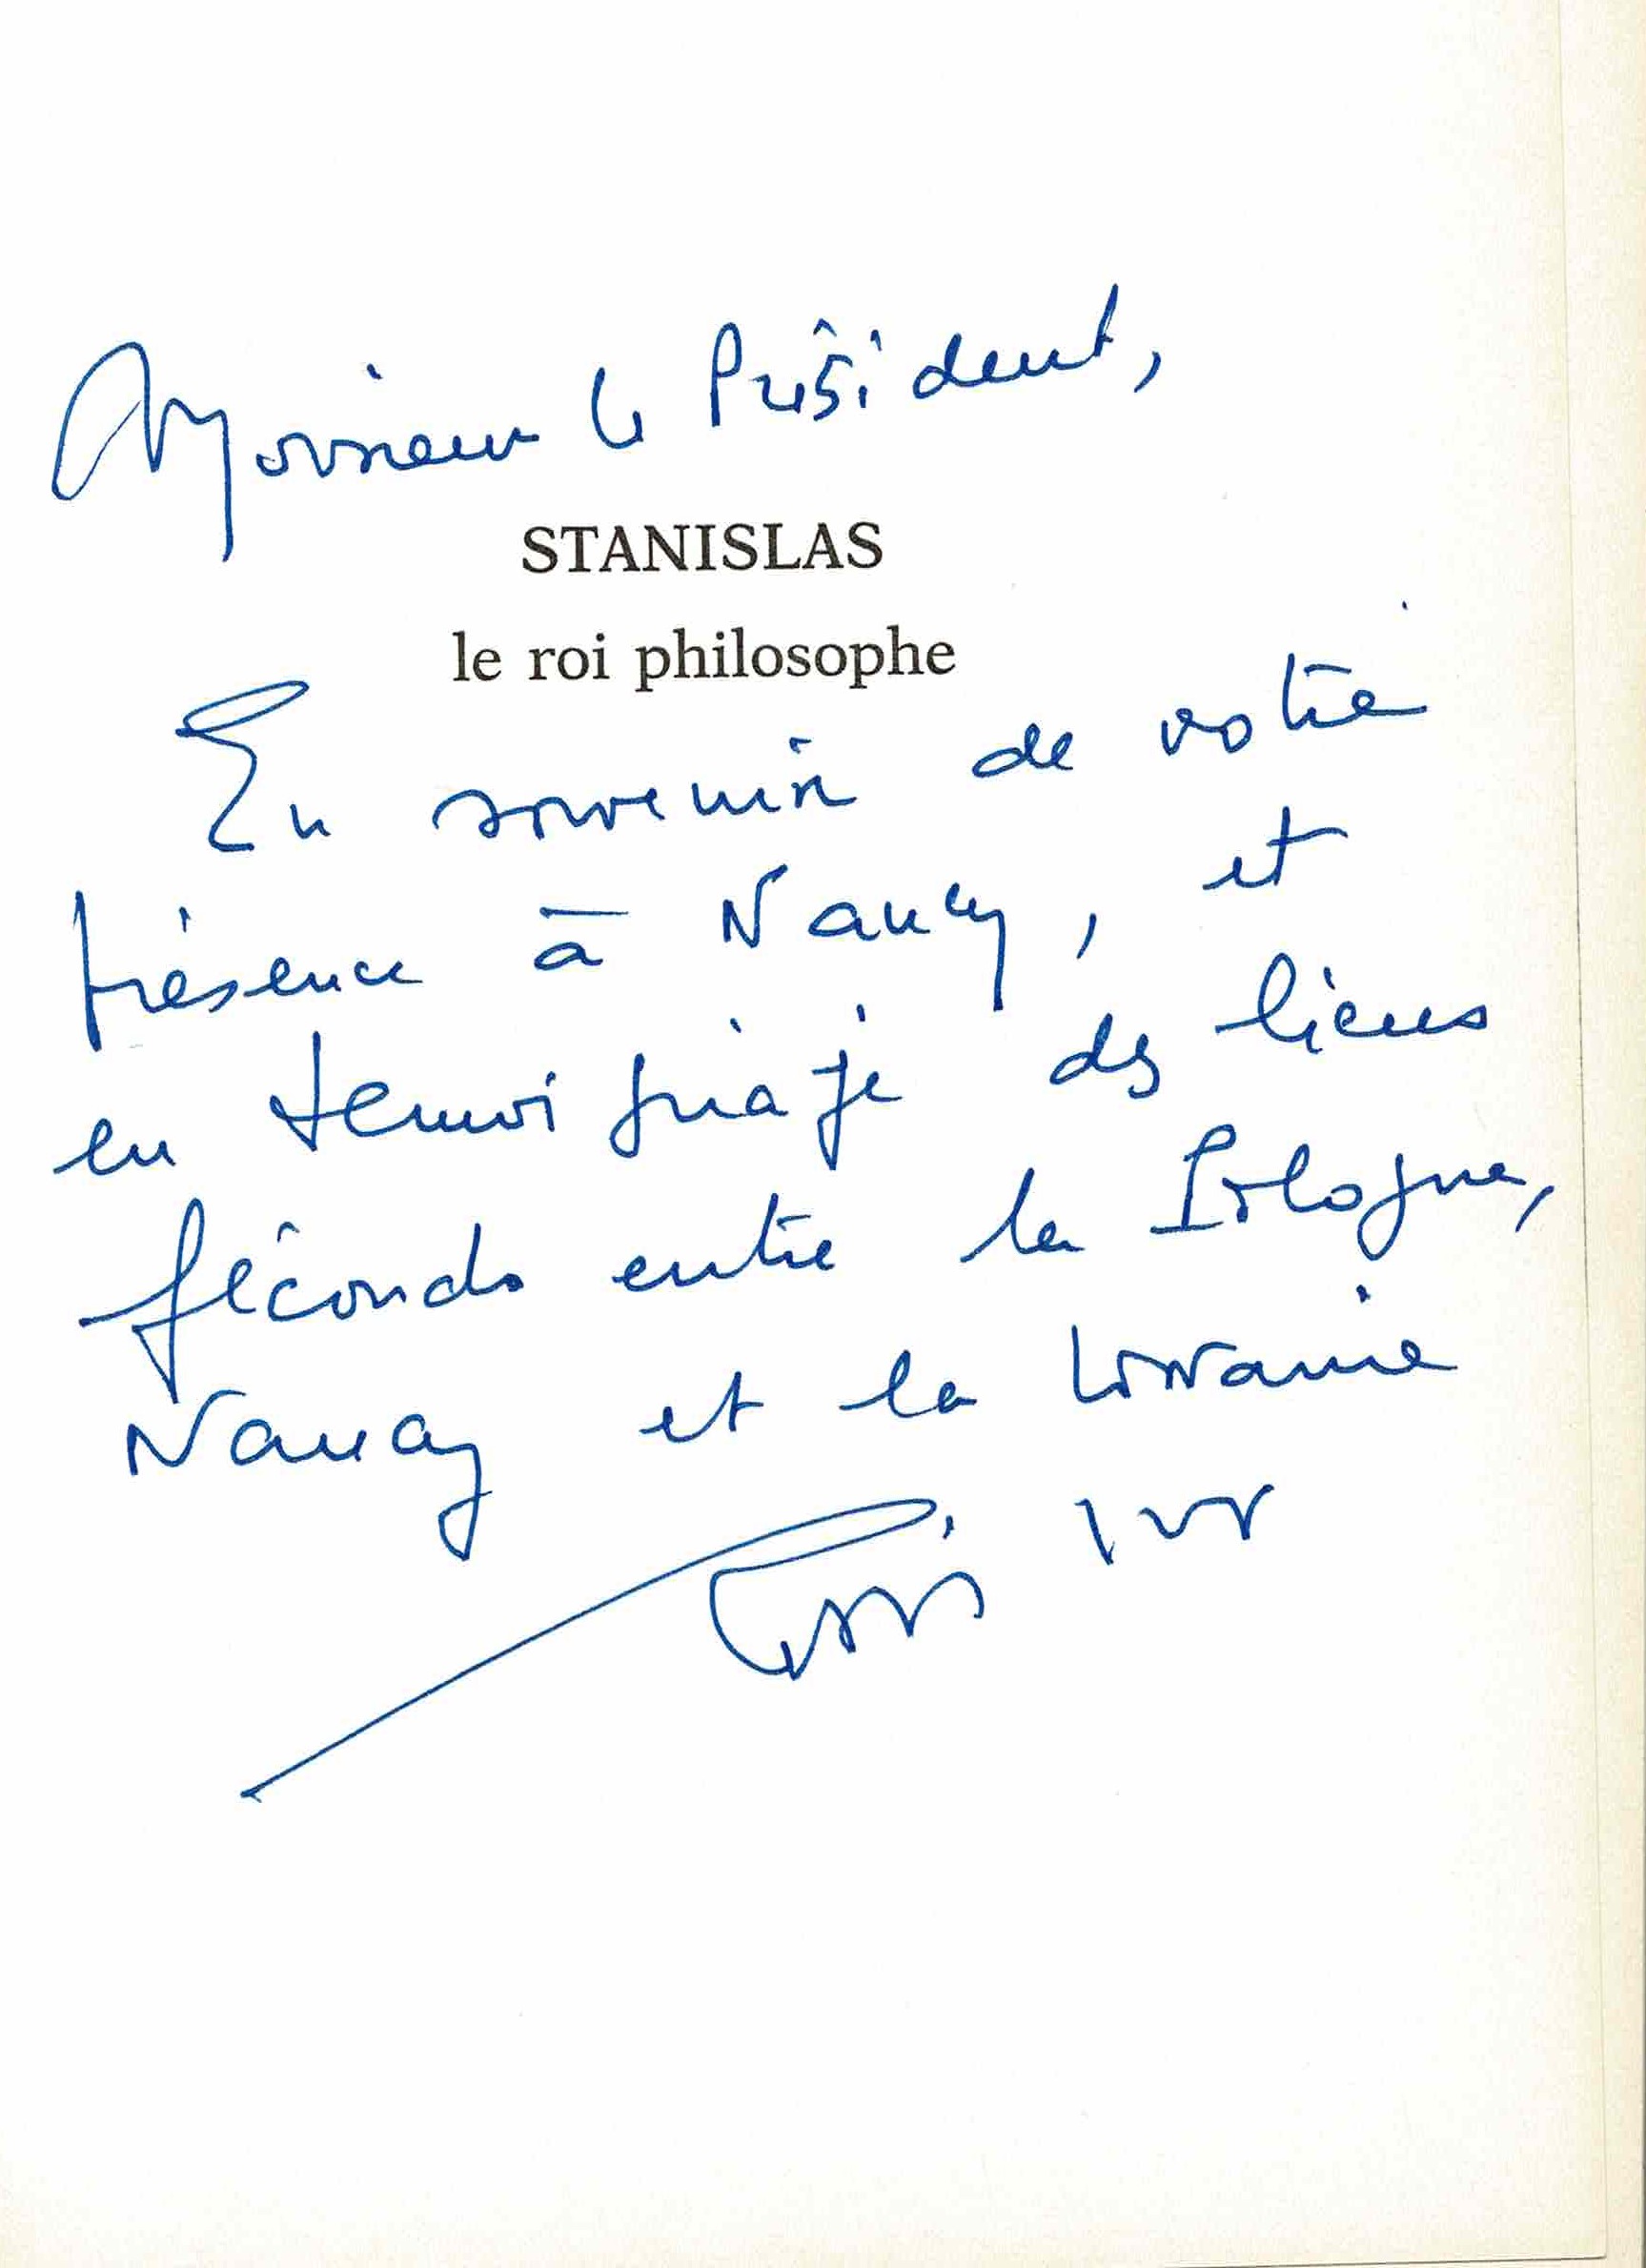 Monsieur le Président,
STANISLAS
le roi philosophe
En souvenir de votre
présence à Nancy, et
en témoignage des liens
féconds entre la Pologne,
Nancy et la Lorraine